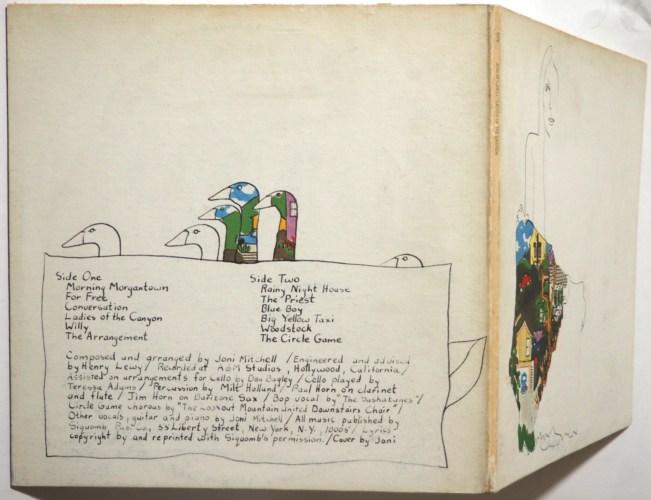 Side One
Morning Morgantown
For Free
Conversation
Ladies of the Canyon
Willy
The Arrangement
Side Two
Rainy Night House
The Priest
Blue Boy
Big Yellow Taxi
Woodstock
The Circle Game
Composed and arranged by Joni Mitchell / Engineered and advised
by Henry Lewy / Recorded at A&M Studios, Hollywood, California /
Assisted on arrangements for Cello by Don Bagley / Cello played by
Teressa Adams / Percussion by Milt Holland / Paul Horn on clarinet
and flute / Jim Horn on Baritone Sax / Bop vocal by "The Saskatunes" /
Circle Game chorus by "The Lookout Mountain United Downstairs Choir" /
Other vocals, guitar and piano by Joni Mitchell / All music published by
Siquomb, 55 Liberty Street, New York, N.Y., 10005 / Lyrics
copyright by and reprinted with Siquomb's permission. / Cover by Joni